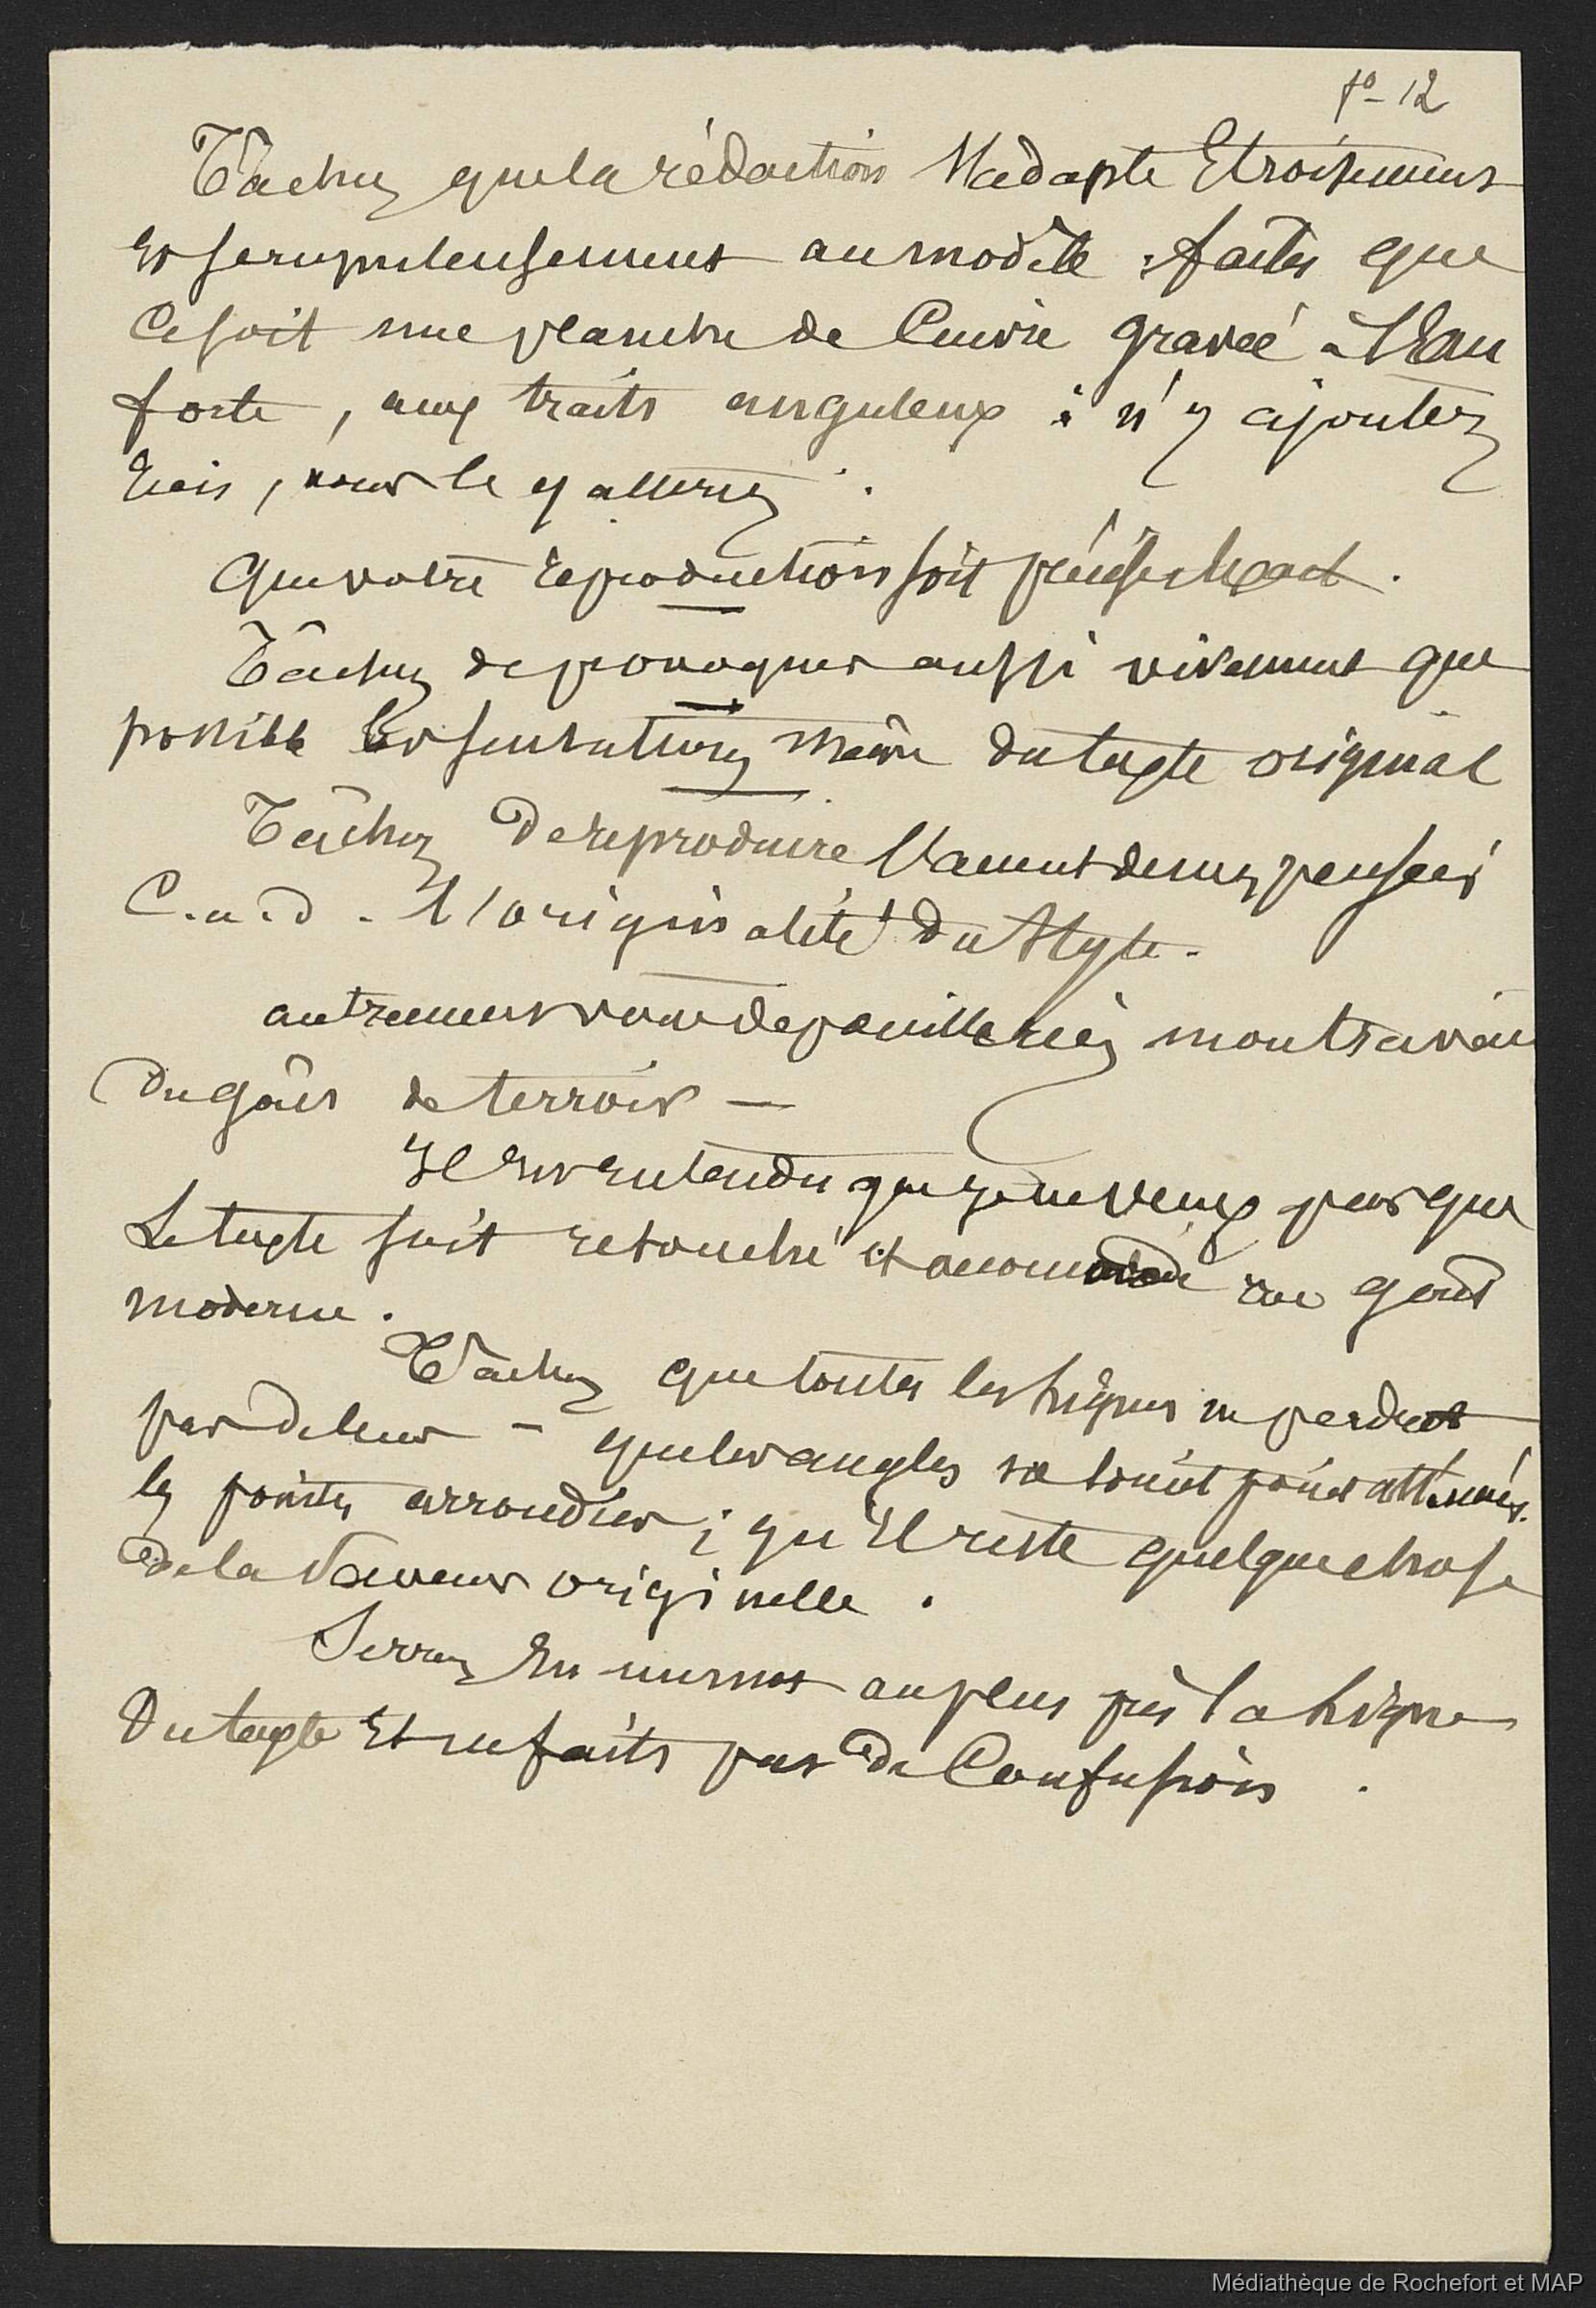 fo- 12
Tâchez que la rédaction s'adapte Etroitement
Et scrupuleusement au modèle : faites que
Ce soit une planche de Cuivre gravée à l'Eau
forte, aux traits anguleux : n'y ajoutez
rien, vous le gatteriez.
Que votre reproduction soit
Tâchez de provoquer aussi vivement que
possible les sensations même du texte original
Tâchez De reproduire l'accent de mes pensées
C.a.d. - l'originalité du style.
autrement vous depouilleriez mon travail
Du goût de terroir —
Il Est Entendu que je ne veux pas que
Le texte soit retouché et accommodé au goût
moderne.
Tâchez que toutes les lignes ne perdent
pas de leur - que les angles ne soient point atténués.
les pointes arrondies ; qu'Il reste quelque chose
De la Saveur originelle.
Serrez En un mot au plus près la ligne
Du texte Et ne faits pas De Confusion.
Médiathèque de Rochefort et MAP